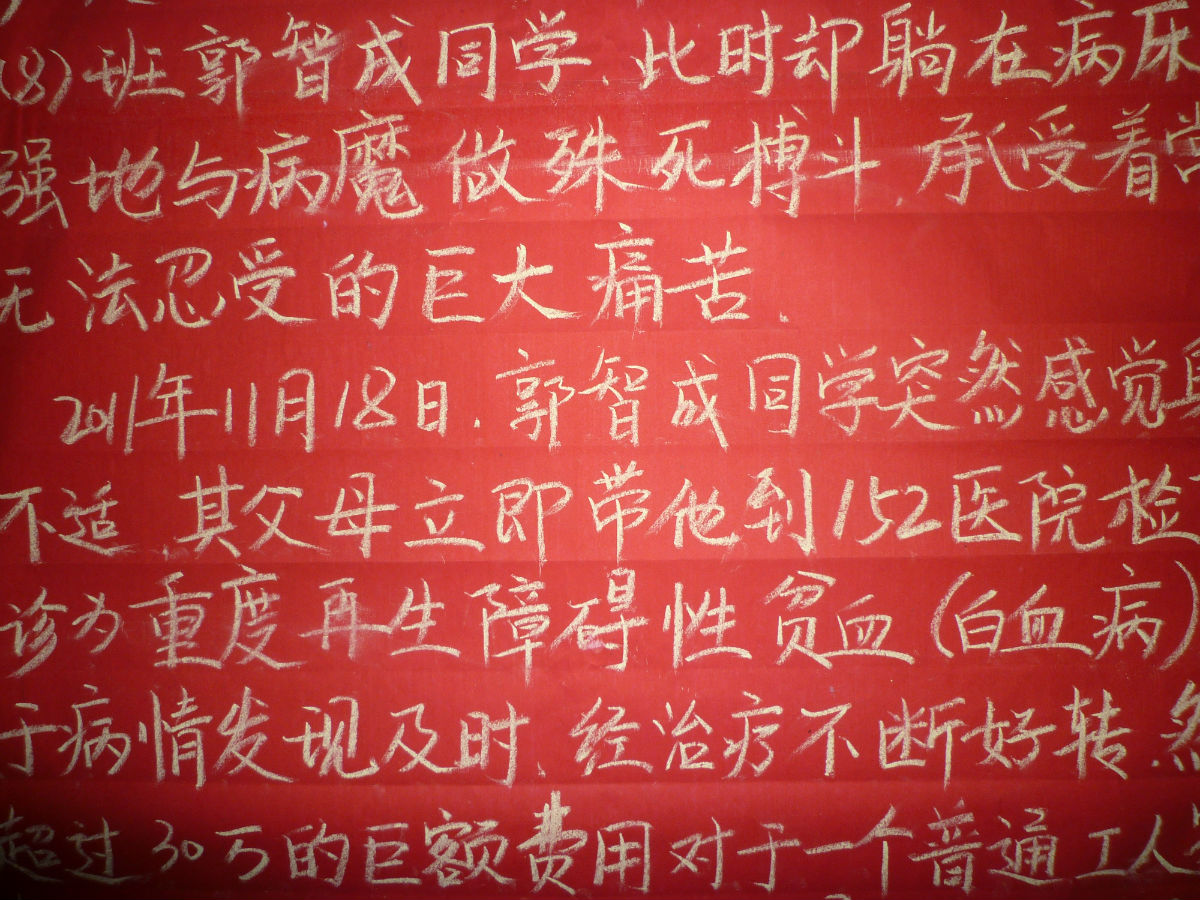 (8)班郭智成同学.此时却躺在病床
强地与病魔做殊死搏斗 承受着常
无法忍受的巨大痛苦.
2011年11月18日.郭智成同学突然感觉身
不适.其父母立即带他到152医院检
诊为重度再生障碍性贫血(白血病)
于病情发现及时.经治疗不断好转.然
超过30万的巨额费用对于一个普通工人